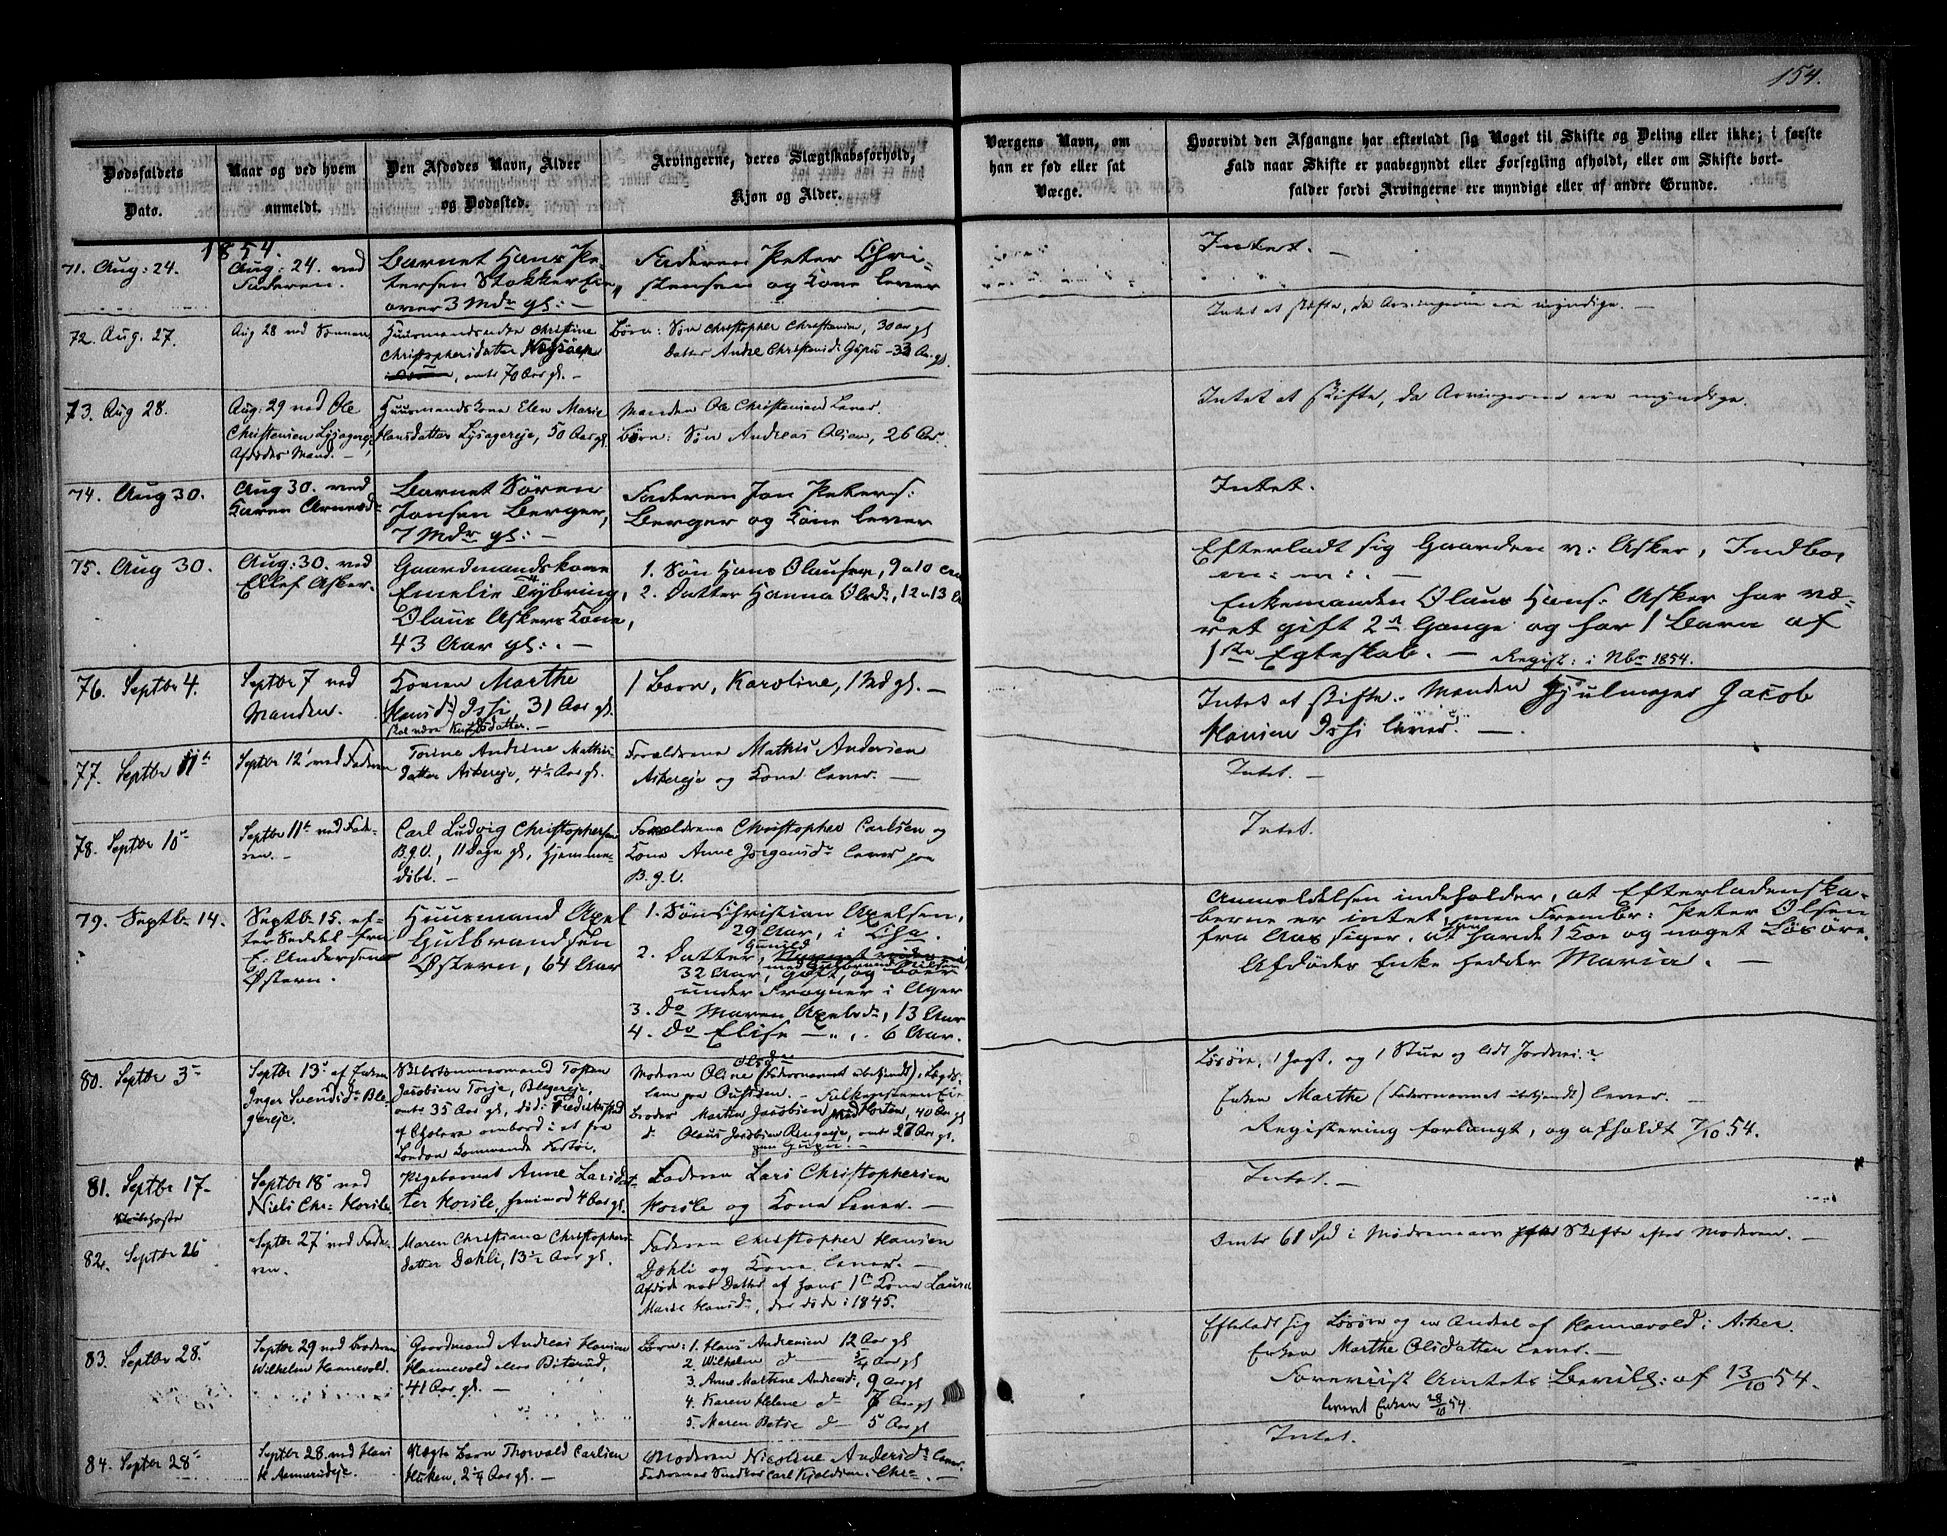 154.
Dødsfaldets
Dato.
Naar og ved hvem
anmeldt.
Den Afdødes Navn, Alder
og Dødssted.
Arvingerne, deres Slægtskabsforhold,
Kjøn og Alder.
Værgens Navn, om
han er fød eller sat
Værge.
Hvorvidt den Afgangne har efterladt sig Noget til Skifte og Deling eller ikke; i første
Fald naar Skifte er paabegyndt eller Forsegling afholdt, eller om Skifte bort-
falder fordi Arvingerne ere myndige eller af andre Grunde.
1854.
71. Aug: 24.
Aug: 24. ved
Faderen.
Barnet Hans Pe-
tersen Stokker
over 3 Mdr gl: —
Faderen Peter Chri-
stensen og Kone lever
Intet. —
72. Aug. 27.
Aug 28 ved Sønnen
Huusmandsenke Christine
Christophersdatter
, omtr 70 Aar gl. —
Børn: Søn Christopher Christensen, 30 aar gl
Datter Andre Christensd: —33 Aar gl.
Intet at skifte, da Arvingerne ere myndige. —
73. Aug 28.
Aug: 29 ved Ole
Christensen Lysagereje
Afdødes Mand. —
Huusmandskone Elen Marie
Hansdatter Lysagereje, 50 Aar gl.
Manden Ole Christensen Lever.
Børn: Søn Andreas Olsen, 26 Aar.
Intet at skifte, da Arvingerne ere myndige.
74. Aug 30.
Aug 30. ved
Karen Arnesd:
Barnet Søren
Jonsen Berger,
7 Mdr gl: —
Faderen Jon Peters:
Berger og Kone lever
Intet.
75. Aug 30.
Aug: 30. ved
Ellef Asker.
Gaardmandskone
Emelie Tybring,
Olaus Askers Kone,
43 Aar gl: . —
1. Søn Hans Olausen, 9 a 10
2. Datter Hanna Olsd:, 12 a 13
Efterladt sig Gaarden n: Asker, Indbo,
m: m: . —
Enkemanden Olaus Hans: Asker har væ-
ret gift 2 Gange og har 1 Barn af
1ste Egteskab. — Regist: i Nbr 1854.
76. Septbr 4.
Septbr 7 ved
Manden.
Konen Marthe
(Hansd:) Issi, 31 Aar gl.
skal være Knudsdatter. —
1 Barn, Karoline, 1 Md gl. —
Intet at skifte. Manden Hjulmager Jacob
Hansen Issi lever. —
77. Septbr 11
Septbr 12 ved Faderen
Torine Andrine Mathis-
datter Askereje, 4½ Aar gl.
Forældrene Mathis Andersen
Askereje og Kone lever. —
Intet. —
78. Septbr 10
Septbr 11 ved Fade-
ren. —
Carl Ludvig Christophersen
B.g.V., 11 Dage gl, Hjemme-
døbt. —
Forældrene Christopher Carlsen og
Kone Anne Jørgensd: lever paa
B.g.V.
Intet.
79. Septbr 14.
Septbr 15. ef-
ter Seddel fra
E: Andersen
Østern.
Huusmand Axel
Gulbrandsen
Østern, 64 Aar
1. Søn Christian Axelsen,
29 Aar, i LHa.
2. Datter, Gunild
32 Aar, gift, og boer
under Frogner i Ager
3. Do Maren Axelsd:, 13 Aar
4. Do Elise — „ . 6 Aar.
Anmeldelsen indeholder, at Efterladenska-
berne er intet, men Frembr: Peter Olsen
fra Aas siger, at han havde 1 Koe og noget Løsøre.
Afdødes Enke hedder Maria. —
80. Septbr 3
Septbr 13 af Enken
Inger Svendsd: Ble-
gereje.
Jacobsen Torje, Blegereje,
omtr 35 Aar gl, død: ved Frederikstad
af Cholera ombord i et fra
London kommende
Moderen Oline Olsd: (Fadersnavnet ubekjendt), Lægds-
lem paa
Broder Martin Jacobsen ved Horten, 40 Aar gl
d: Olaus Jacobsen Ringieje, omtr 27 Aar gl.
Løsøre, 1 Jagt, og 1 Stue og lidt Jordvei. —
Enken Marthe (Fadersnavnet ubekjendt) lever. —
Registering forlangt, og afholdt 7/10 54.
81. Septbr 17.
Septbr 18 ved
Niels Chr: Horsle.
Pigebarnet Anne Larsdat-
ter Horsle, henimod 4 Aar gl.
Faderen Lars Christophersen
Horsle og Kone Lever. —
Intet. —
82. Septbr 26
Septbr 27 ved Fade-
ren.
Maren Christiane Christophers-
datter Dahli, 13½ Aar gl.
Faderen Christopher Hansen
Dahli og Kone lever. —
Afdøde var Datter af hans 1ste Kone Laura
Marie Hansd:, der døde i 1845.
Omtr 68 Spd i Mødrenearv Skifte efter Moderen. —
83. Septbr 28.
Septbr 29 ved Broderen
Wilhelm Hannevold.
Gaardmand Andreas Hansen
Hannevold eller Bitterud,
41 Aar gl. —
Børn: 1. Hans Andreasen 12 Aar gl
2. Wilhelm d — ¾ Aar gl
3. Anne Martine Andreasd:, 9 Aar gl
4. Karen Helene d — 7 Aar gl
5. Maren Betse d — 5 Aar gl
Efterladt sig Løsøre og en Andel af Hannevold i Asker.
Enken Marthe Olsdatter lever. —
Foreviist Amtets Bevilg: af 13/10 54.
leveret Enken 28/10 54.
84. Septbr 28
Septbr 28. ved Hans
H. Annerudeje.
Uægte Barn Thorvald Carlsen
Haken, 2¼ Aar gl. —
Moderen Nicoline Andersd: lever.
Faderen er Snedker Carl Kjeldsen i Chra. —
Intet.